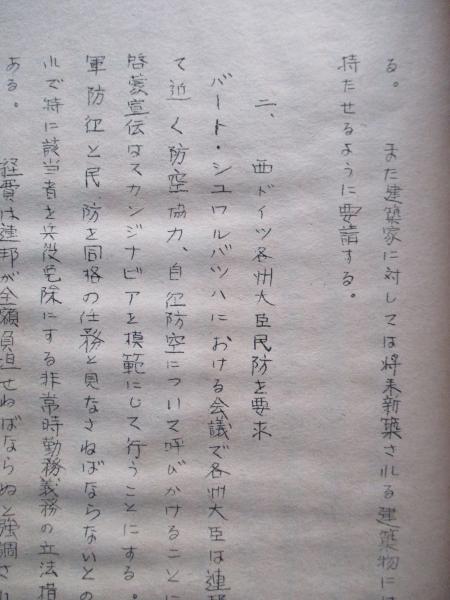 る。　また建築家に対しては将来新築される建築物には
持たせるように要請する。
二、西ドイツ各州大臣民防を要求
バート・シュワルバッハにおける会議で各州大臣は連邦
て近く防空協力、自衛防空について呼びかけることに
啓蒙宣伝はスカンジナビアを模範にして行うことにする。
軍防衛と民防を同格の任務と見なさねばならないとの
ルで特に該当者を兵役免除にする非常時勤務義務の立法措
ある。　経費は連邦が全額負担せねばならぬと強調され